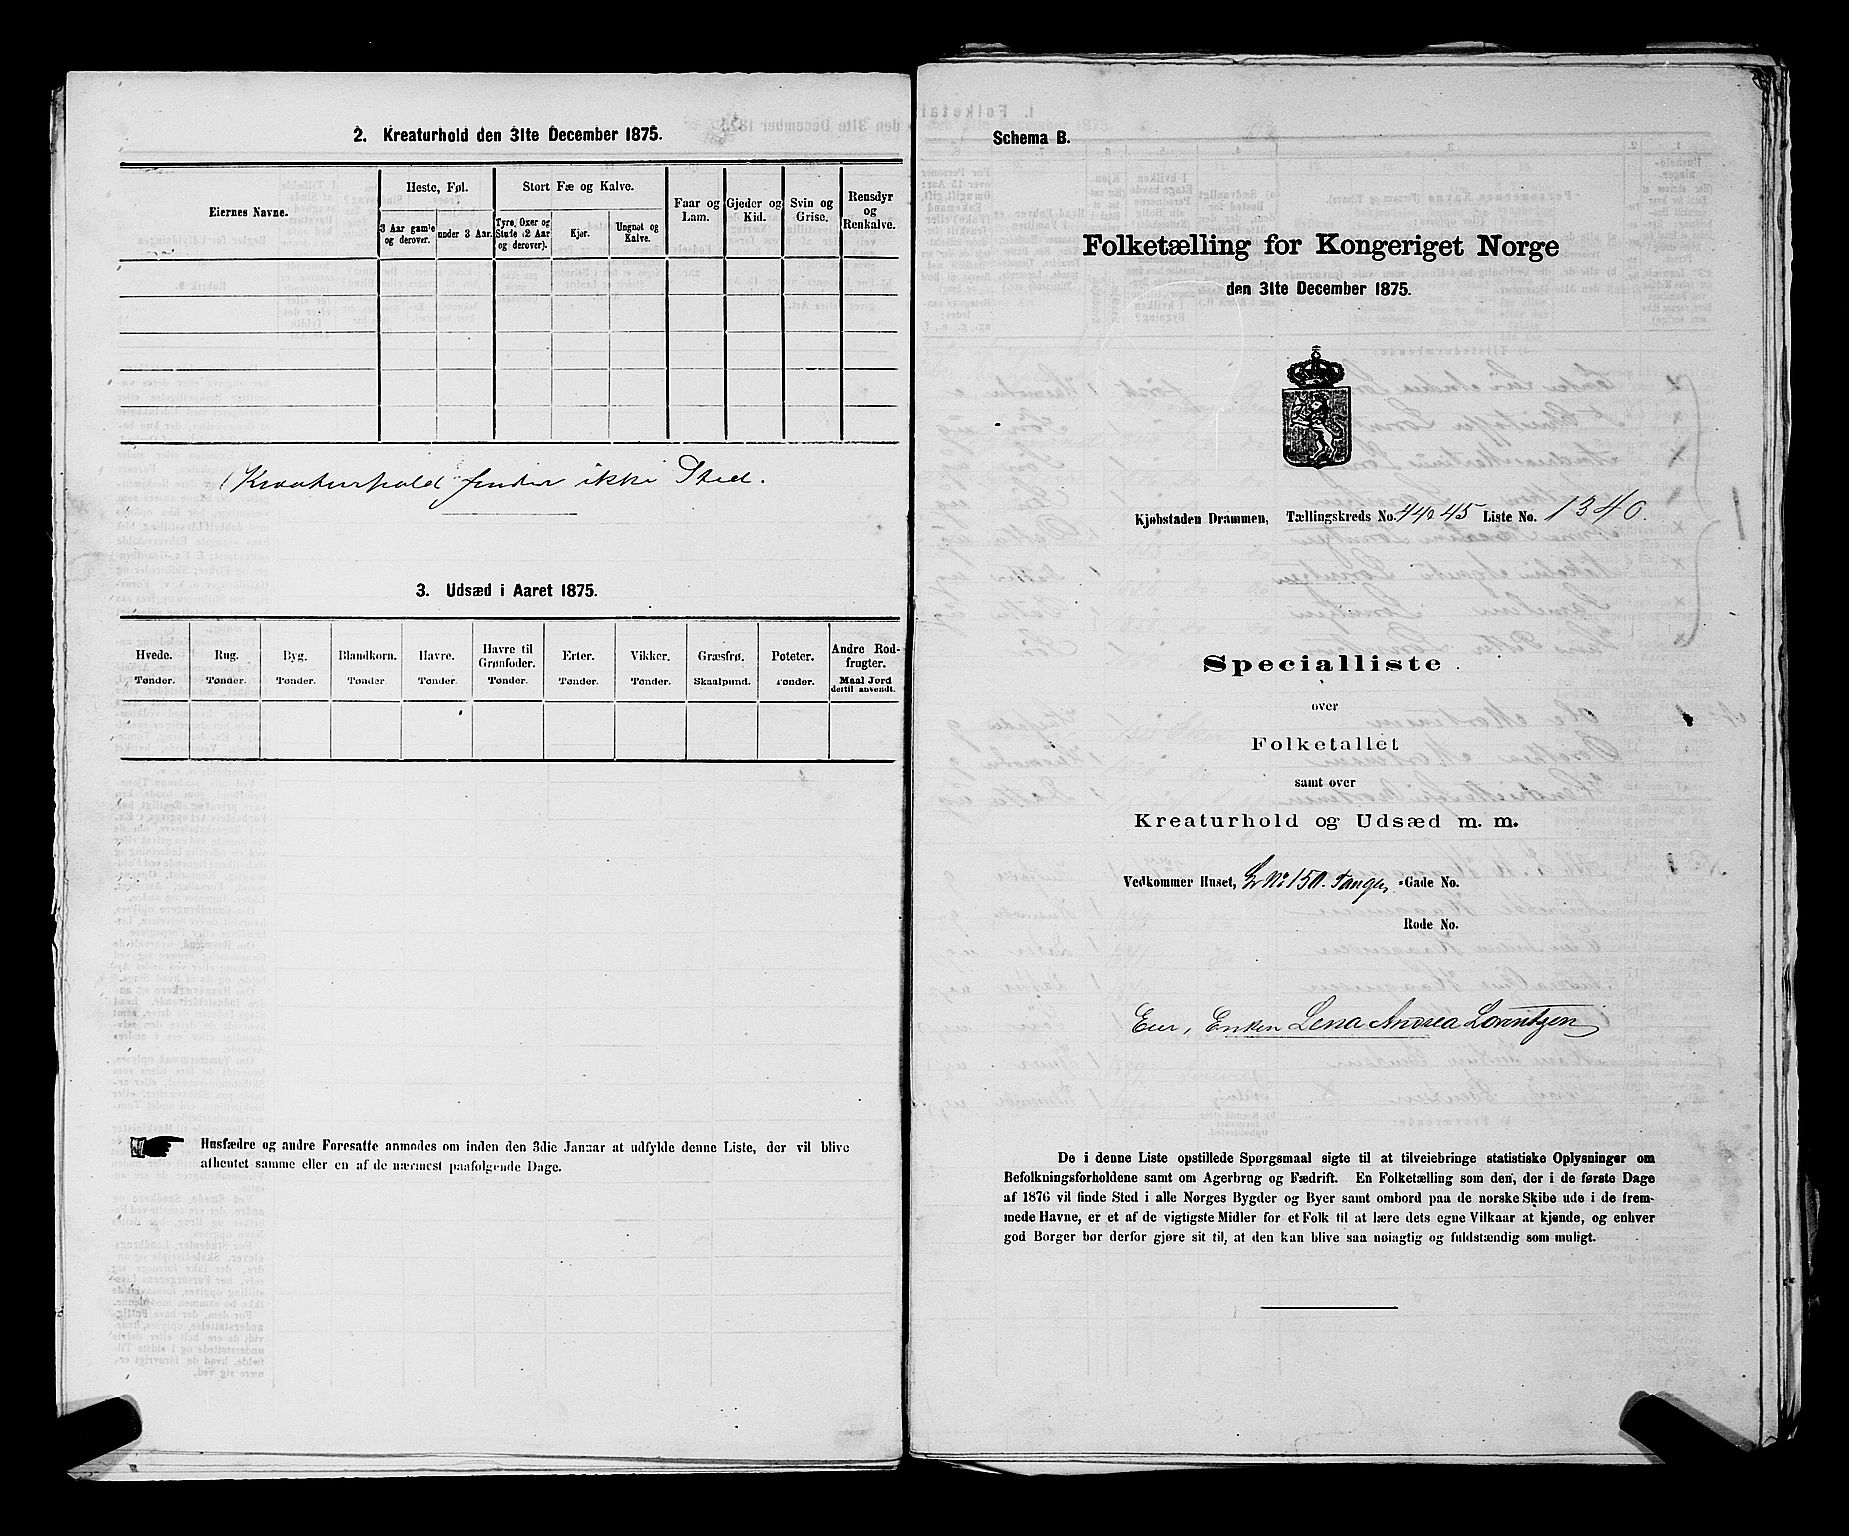 2. Kreaturhold den 31te December 1875.
Eiernes Navne.
Heste, Føl.
Stort Fæ og Kalve.
Faar og Lam.
Gjeder og Kid.
Svin og Grise.
Rensdyr og Renkalve.
3 Aar gamle og derover.
under 3 Aar.
Tyre, Oxer og Stude (2 Aar og derover).
Kjør.
Ungnøt og Kalve.
Kreaturhold finder ikke Sted.
3. Udsæd i Aaret 1875.
Hvede.
Rug.
Byg.
Blandkorn.
Havre.
Havre til Grønfoder.
Erter.
Vikker.
Græsfrø.
Poteter.
Andre Rodfrugter.
Tønder.
Tønder.
Tønder.
Tønder
Tønder.
Tønder.
Tønder.
Tønder.
Skaalpund.
Tønder.
Maal Jord dertil anvendt.
Husfædre og andre Foresatte anmodes om inden den 3die Januar at udfylde denne Liste, der vil blive
afhentet samme eller en af de nærmest paafølgende Dage.
Schema B.
Folketælling for Kongeriget Norge
den 31te December 1875.
Kjøbstaden Drammen, Tællingskreds No. 44&45 Liste No. 1340.
Specialliste
over
Folketallet
samt over
Kreaturhold og Udsæd m. m.
Vedkommer Huset, Lr No 150. Tangen -Gade No.
Rode No.
Eier, Enken Lena Andrea Lorentzen
De i denne Liste opstillede Spørgsmaal sigte til at tilveiebringe statistiske Oplysninger om
Befolkningsforholdene samt om Agerbrug og Fædrift. En Folketælling som den, der i de første Dage
af 1876 vil finde Sted i alle Norges Bygder og Byer samt ombord paa de norske Skibe ude i de frem-
mede Havne, er et af de vigtigste Midler for et Folk til at lære dets egne Vilkaar at kjende, og enhver
god Borger bør derfor gjøre sit til, at den kan blive saa nøiagtig og fuldstændig som muligt.